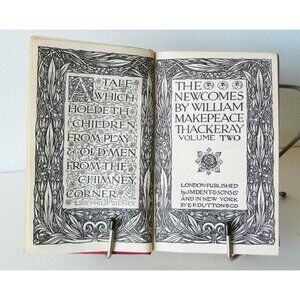 A TALE
WHICH
HOLDETH
CHILDREN
FROM PLAY
& OLD MEN
FROM THE
CHIMNEY
CORNER
SIR PHILIP SIDNEY
THE
NEWCOMES
BY WILLIAM
MAKEPEACE
THACKERAY
VOLUME TWO
LONDON: PUBLISHED
by J.M. DENT & SONS LTD
AND IN NEW YORK
BY E.P. DUTTON & CO